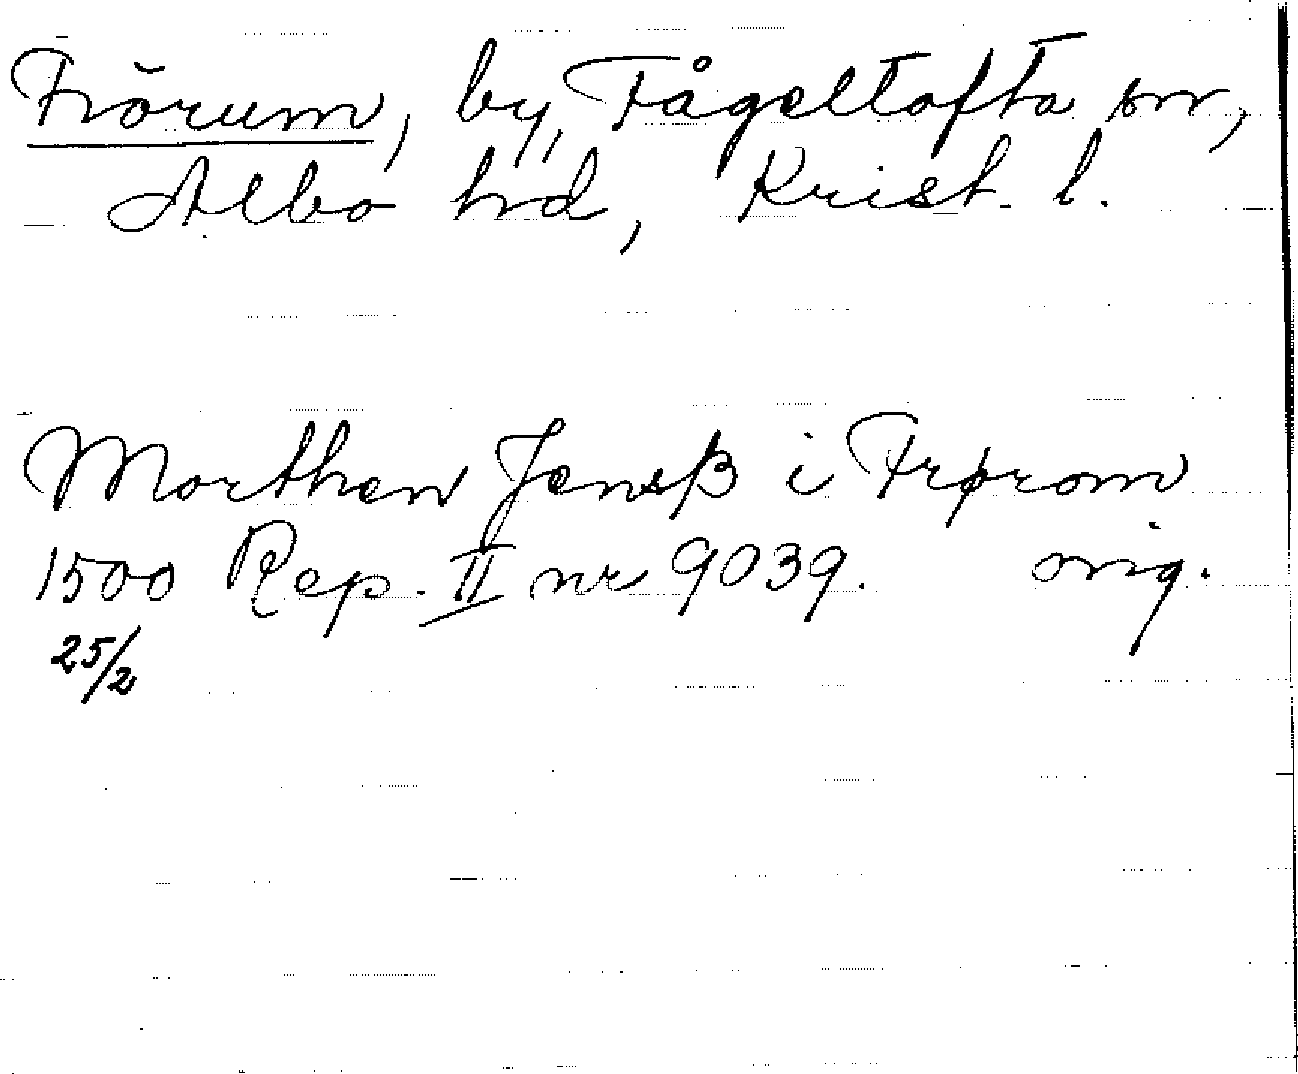 Frörum, by, Fågeltofta sn,
Albo hd, Krist. l.
Morthen Jensß i Frørom
1500 Rep. II nr 9039. orig.
25/2